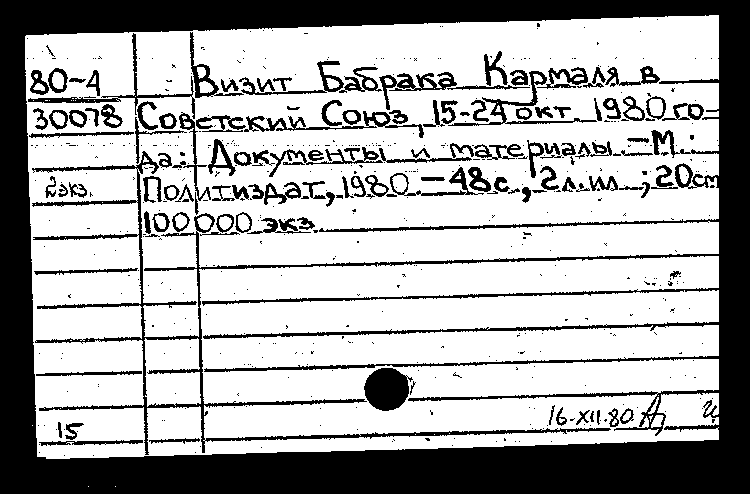 80-4 Визит Бабрака Кармаля в
30078 Советский Союз, 15-24 окт. 1980 го-
да: Документы и материалы. – М.:
2экз. Политиздат, 1980. – 48с., 2л.ил.; 20см
100 000 экз.
16.XII.80
15